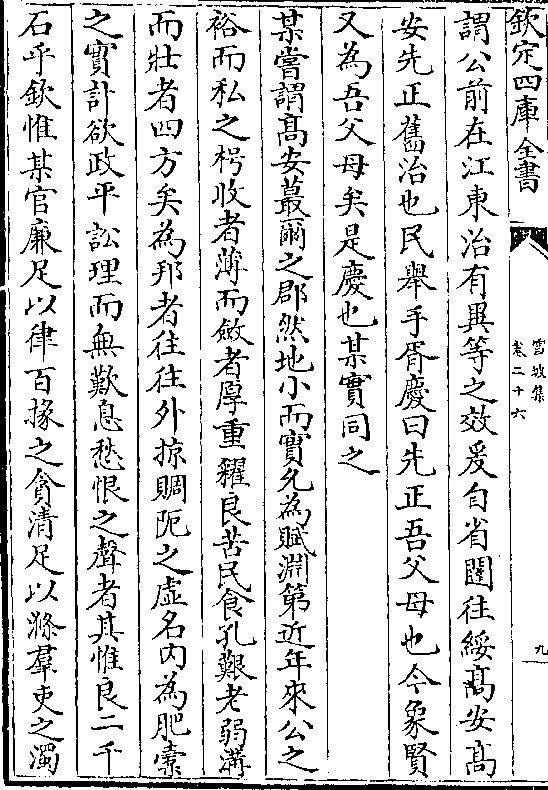 欽定四庫全書
雪坡集
卷二十六
九
謂公前在江東治有異等之效爰自省闥往綏髙安髙
安先正舊治也民舉手胥慶曰先正吾父母也今象賢
又為吾父母矣是慶也某實同之
某嘗謂髙安蕞爾之郡然地小而實允為賦淵第近年來公之
裕而私之枵收者薄而斂者厚重糴良苦民食孔艱老弱溝
而壯者四方矣為邦者往往外掠賙阨之虛名内為肥橐
之實計欲政平訟理而無歎息愁恨之聲者其惟良二千
石乎欽惟某官亷足以律百掾之貪清足以滌羣吏之濁